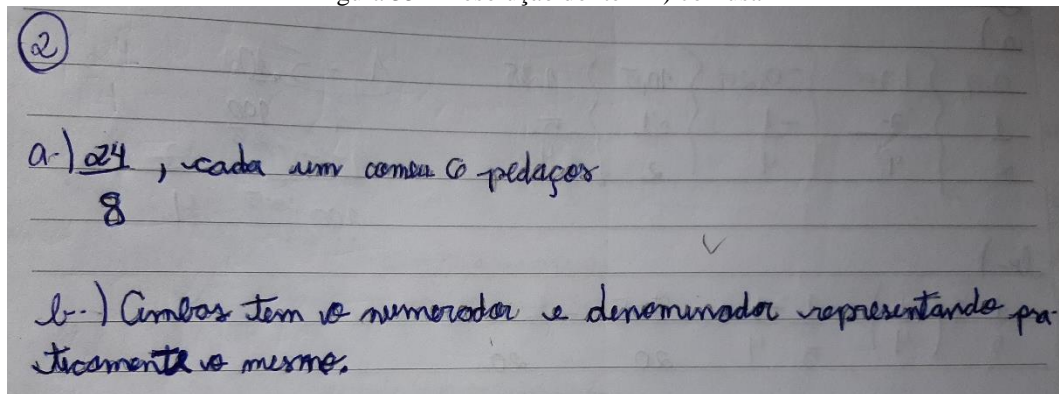 2
a-) 24/8, cada um comeu 6 pedaços
b-) Ambos tem o numerador e denominador representando pra-
ticamente o mesmo.